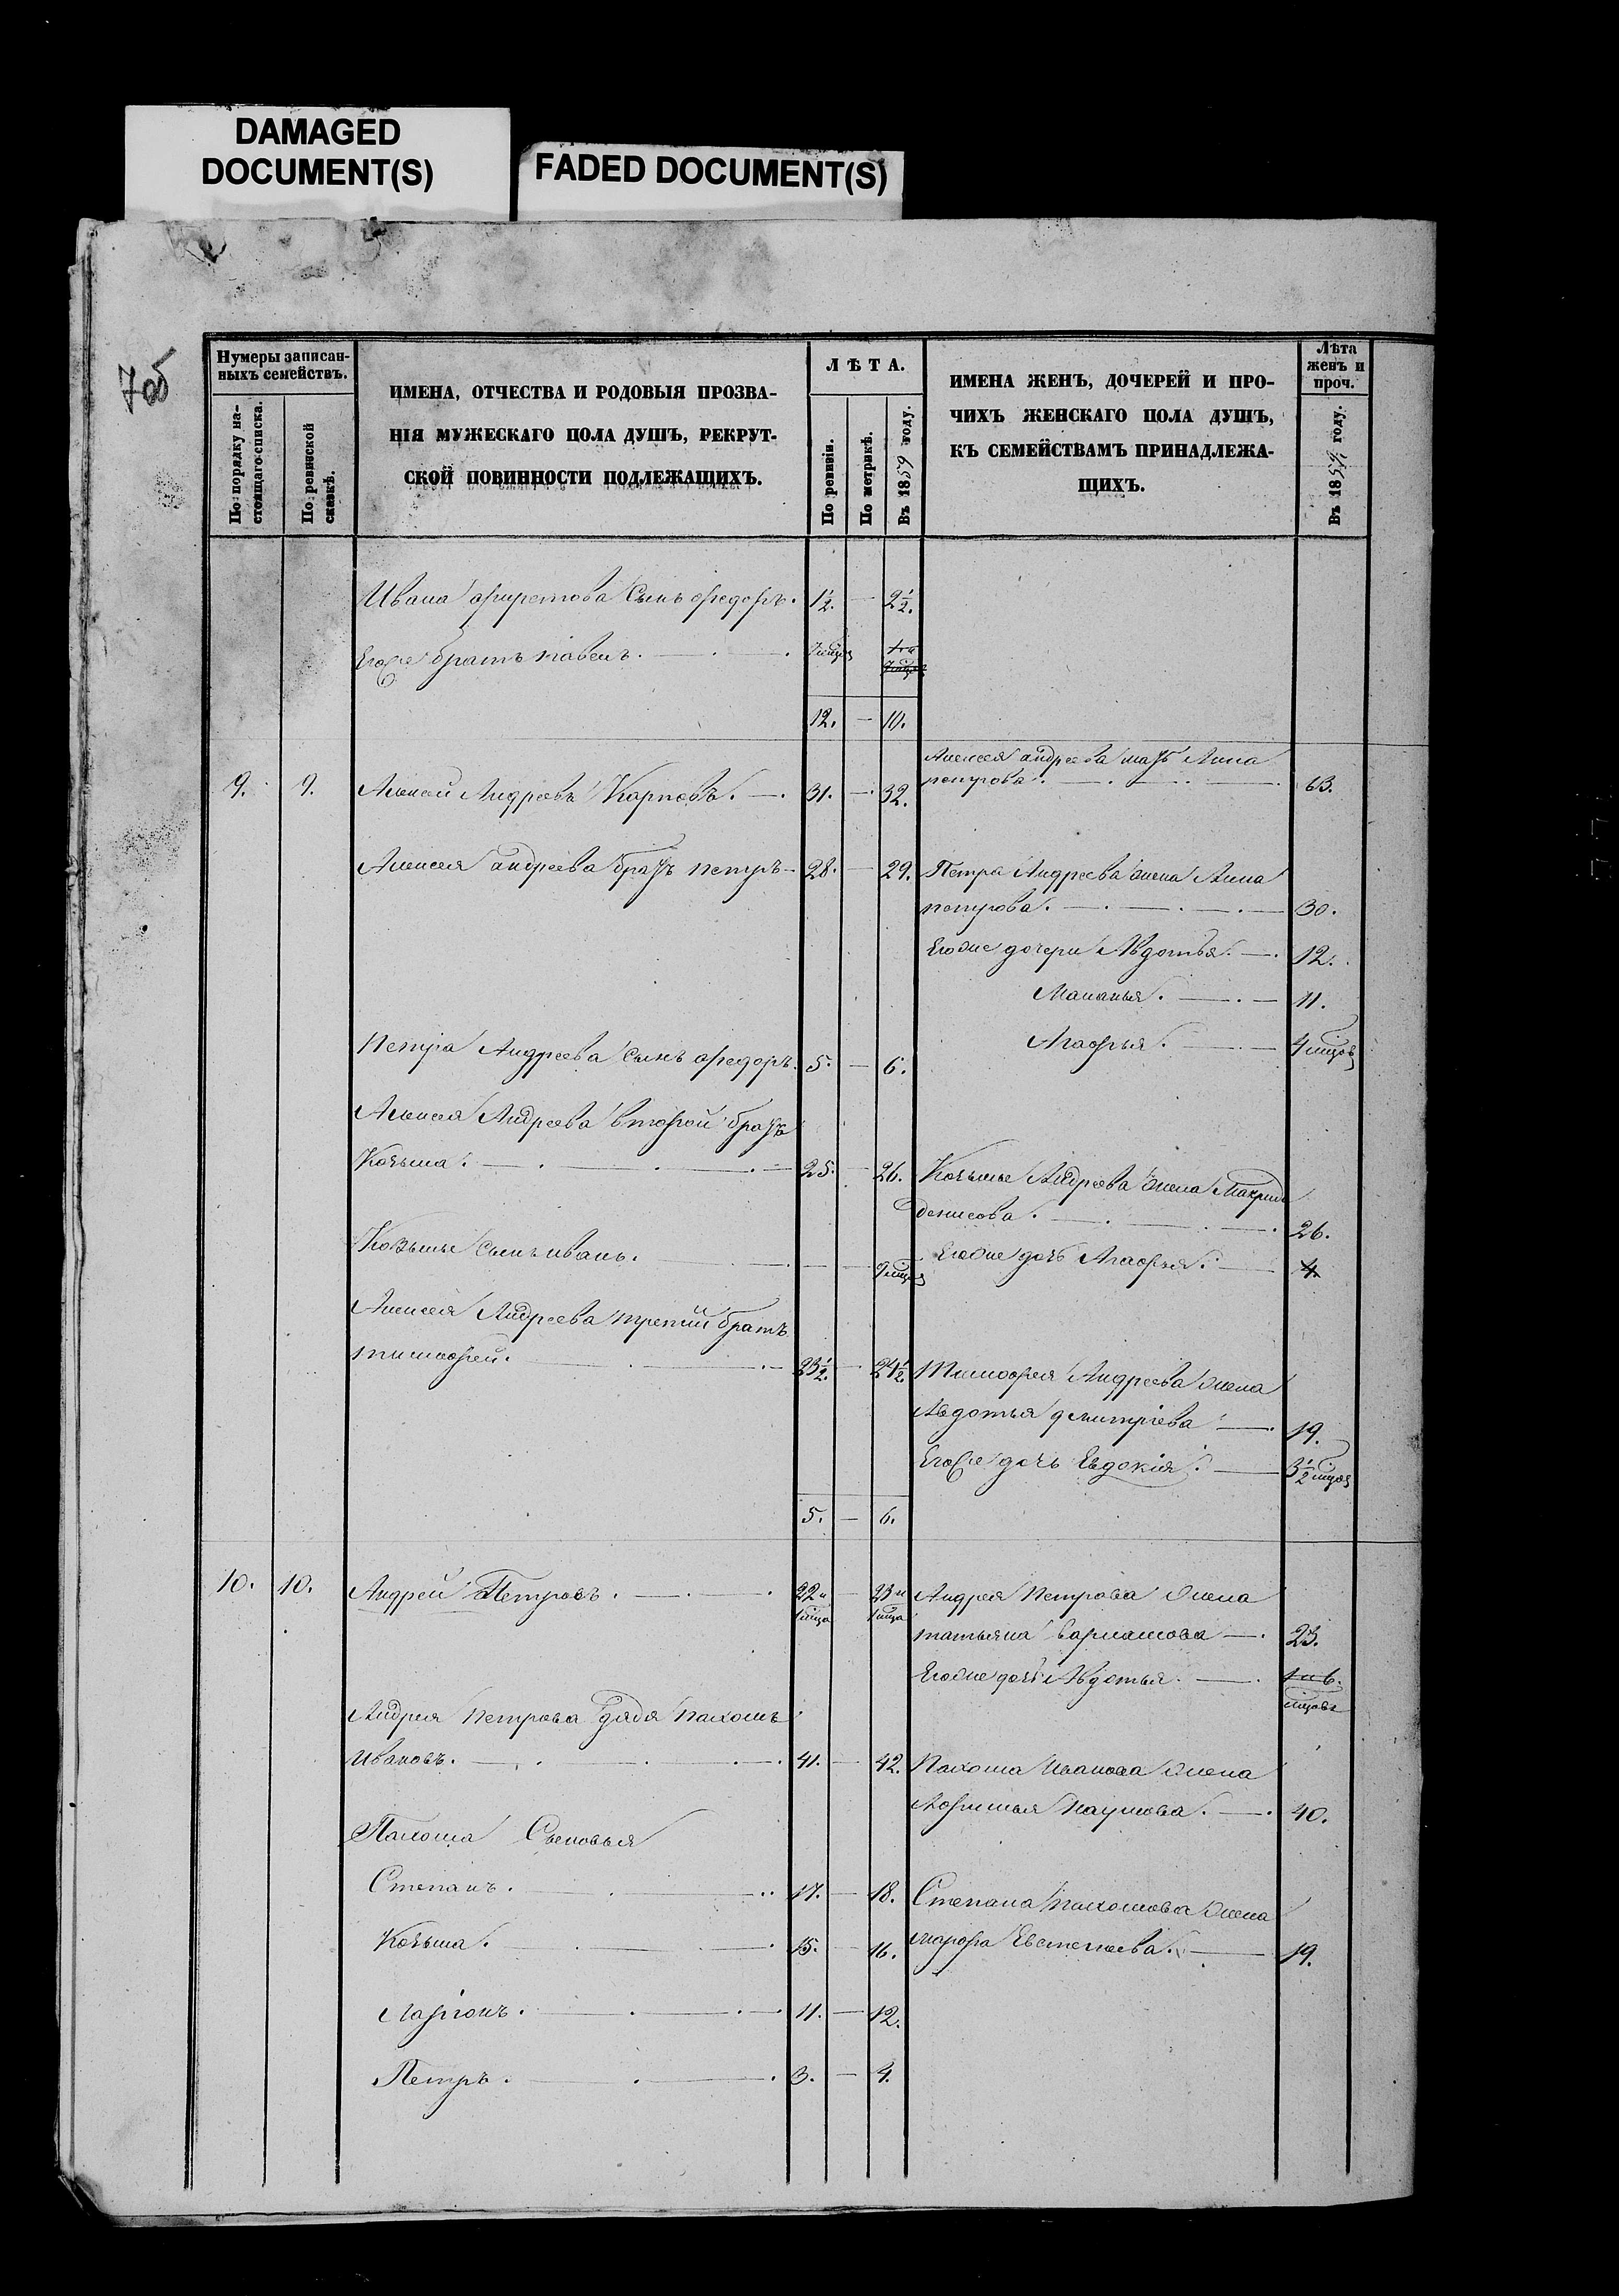 DAMAGED
DOCUMENT(S)
FADED DOCUMENT(S)
7об
Нумеры записан-
ныхъ семействъ.
По порядку на-
стоящаго списка.
По ревизской
сказкѣ.
ИМЕНА, ОТЧЕСТВА И РОДОВЫЯ ПРОЗВА-
НІЯ МУЖЕСКАГО ПОЛА ДУШЪ, РЕКРУТ-
СКОЙ ПОВИННОСТИ ПОДЛЕЖАЩИХЪ.
ЛѢТА.
По ревизіи.
По метрикѣ.
Въ 1859 году.
ИМЕНА ЖЕНЪ, ДОЧЕРЕЙ И ПРО-
ЧИХЪ ЖЕНСКАГО ПОЛА ДУШЪ,
КЪ СЕМЕЙСТВАМЪ ПРИНАДЛЕЖА-
ЩИХЪ.
Лѣта
женъ и
проч.
Въ 1859 году.
Ивана фиретова Сынъ федоръ. 1½. — 2½.
Егоже братъ павелъ.
12. — 10.
Алексея андреева мать Анна
9. 9. Алексей Андреевъ Карповъ. 31. — 32. петрова. 63.
Алексея андреева братъ петръ 28. — 29. Петра Андреева жена Анна
петрова. 30.
Егоже дочери Авдотья. 12.
Маланья. 11.
Агафья. 4 мцовъ
Петра Андреева сынъ федоръ. 5. — 6.
Алексея Андреева второй братъ
Козьма. 25. — 26. Козьмы Андреева жена Макрида
денисова. 26.
Козьмы сынъ иванъ. Егоже дочь Агафья. 4.
Алексея Андреева третий братъ
тимофей. 23½. — 24½. Тимофея Андреева жена
Авдотья дмитріева 19.
Егоже дочь Евдокія. 3½ мцов
5. — 6.
10. 10. Андрей Петровъ. 22 и 1 мца — 23 и 1 мца Андрея Петрова жена
татьяна варламова 23.
Егоже дочь Авдотья. 1 и 6. мцовъ
Андрея петрова дядя пахомъ
ивановъ. 41. — 42. Пахома Иванова жена
Афимья Наумова. 40.
Пахома Сыновья
Степанъ. 17. — 18. Степана пахомова жена
Козьма. 15. — 16. марфа Евстигнеева. 19.
Ларіонъ. 11. — 12.
Петръ. 3. — 4.